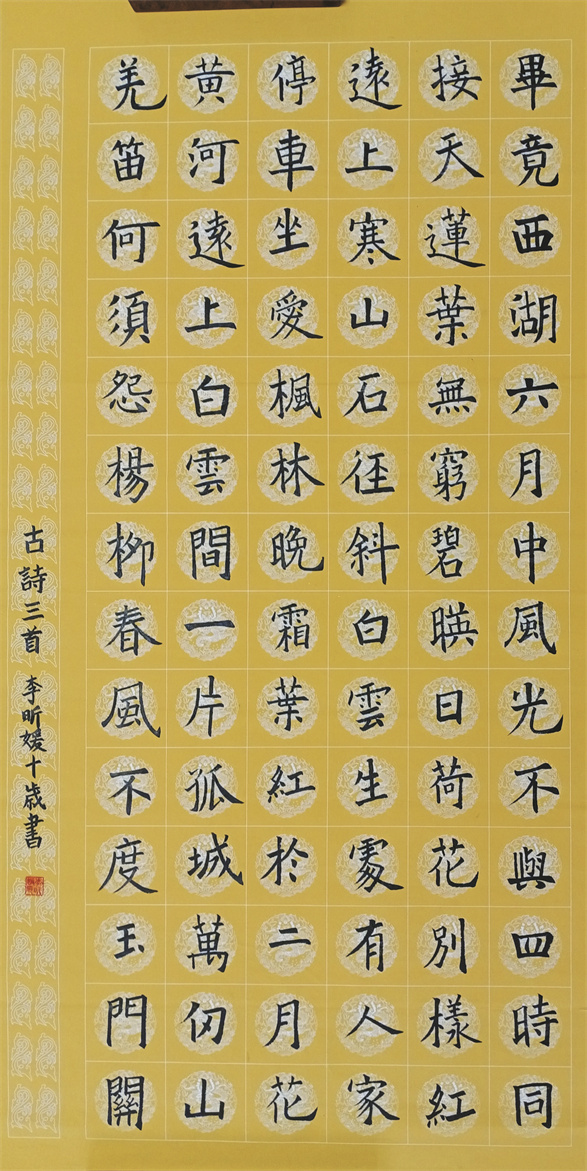 畢竟西湖六月中風光不與四時同
接天蓮葉無窮碧暎日荷花別樣紅
遠上寒山石径斜白雲生處有人家
停車坐愛楓林晚霜葉紅於二月花
黃河遠上白雲間一片孤城萬仞山
羌笛何須怨楊柳春風不度玉門關
古詩三首 李昕媛十歲書